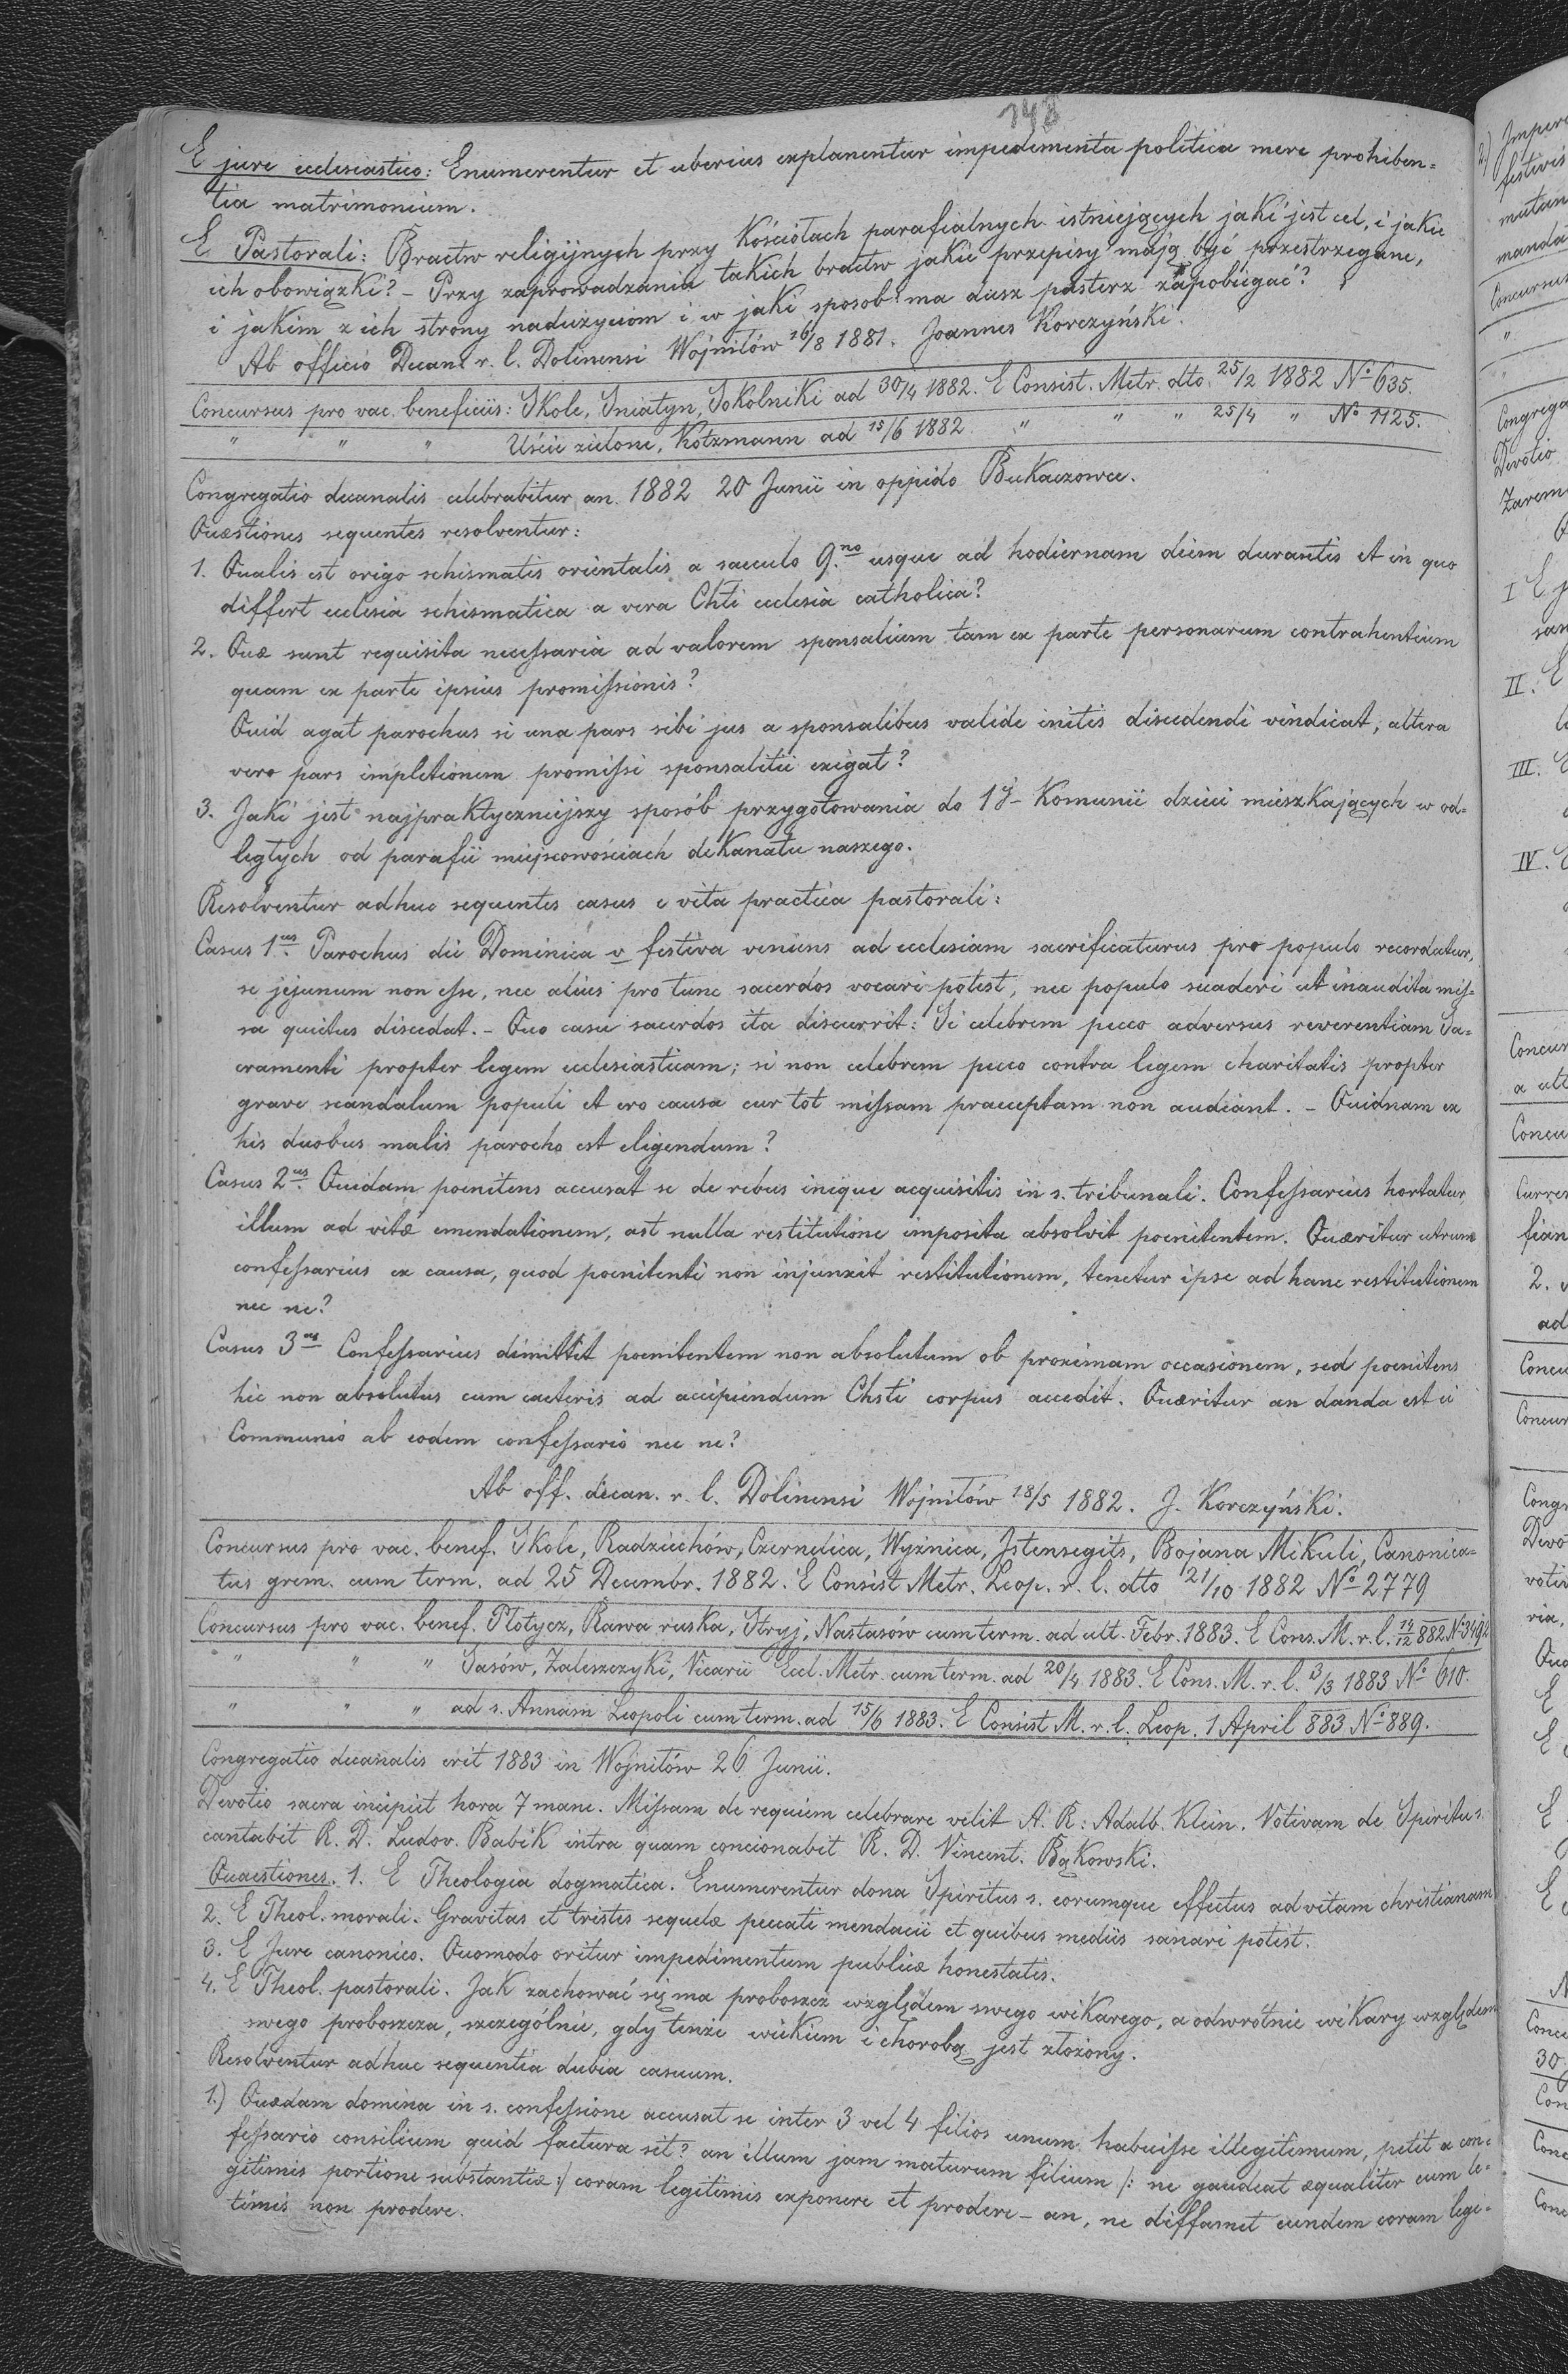 148
E jure ecclesiastico: Enumerentur et uberius explanentur impedimenta politica mere prohiben=
tia matrimonium.
E Pastorali: Bractw religijnych przy Kościołach parafialnych istniejących jaki jest cel, i jakie
ich obowiązki? – Przy zaprowadzaniu takich bractw jakie przepisy mają być przestrzegane,
i jakim z ich strony nadużyciom i w jaki sposob ma dusz pasterz zapobiegać?
Ab officio Decan. r. l. Dolinensi Wojniłów 16/8 1881. Joannes Korczyński.
Concursus pro vac. beneficiis: Skole, Sniatyn, Sokolniki ad 30/4 1882. E Consist. Metr. dto. 25/2 1882 No 635.
" " " Uście zielone, Kotzmann ad 15/6 1882 " " " 25/4 " No 1125.
Congregatio decanalis celebrabitur an. 1882 20 Junii in oppido Bukaczowce.
Quæstiones sequentes resolventur:
1. Qualis est origo schismatis orientalis a saeculo 9.no usque ad hodiernam diem durantis et in quo
differt ecclesia schismatica a vera Chti ecclesia catholica?
2. Quæ sunt requisita necessaria ad valorem sponsalium tam ex parte personarum contrahentium
quam ex parte ipsius promissionis?
Quid agat parochus si una pars sibi jus a sponsalibus valide initis discedendi vindicat, altera
vero pars impletionem promissi sponsalitii exigat?
3. Jaki jest najpraktyczniejszy sposób przygotowania do 1éj Komunii dzieci mieszkających w od=
ległych od parafii miejscowościach dekanatu naszego.
Resolventur adhuc sequentes casus e vita practica pastorali:
Casus 1us Parochus die Dominica v festiva veniens ad ecclesiam sacrificaturus pro populo recordatur,
se jejunum non esse, nec alius pro tunc sacerdos vocari potest, nec populo suaderi ut inaudita mis=
sa quietus discedat. – Quo casu sacerdos ita discurrit: Si celebrem pecco adversus reverentiam Sa=
cramenti propter legem ecclesiasticam; si non celebrem pecco contra legem charitatis propter
grave scandalum populi et ero causa cur tot missam praeceptam non audiant. – Quidnam ex
his duobus malis parocho est eligendum?
Casus 2us Quidam poenitens accusat se de rebus inique acquisitis in s. tribunali. Confessarius hortatur
illum ad vitæ emendationem, ast nulla restitutione imposita absolvit poenitentem. Quæritur utrum
confessarius ex causa, quod poenitenti non injunxit restitutionem, tenetur ipse ad hanc restitutionem
nec ne?
Casus 3us Confessarius dimittit poenitentem non absolutum ob proximam occasionem, sed poenitens
hic non absolutus cum caeteris ad accipiendum Chsti corpus accedit. Quæritur an danda est ei
Communio ab eodem confessario nec ne?
Ab off. decan. r. l. Dolinensi Wojniłów 18/5 1882. J. Korczyński.
Concursus pro vac. benef. Skole, Radziechów, Czernelica, Wyżnica, Istensegits, Bojana Mikuli, Canonica=
tus grem. cum term. ad 25 Decembr. 1882. E Consist Metr. Leop. r. l. dto 21/10 1882 No 2779
Concursus pro vac. benef. Płotycz, Rawa ruska, Stryj, Nastasów cum term. ad ult. Febr. 1883. E Cons. M. r. l. 14/12 882 No 3492
" " " Sasów, Zaleszczyki, Vicarii Eccl. Metr. cum term. ad 20/4 1883. E Cons. M. r. l. 3/3 1883 No 610.
" " " ad s. Annam Leopoli cum term. ad 15/6 1883. E Consist M. r. l. Leop. 1 April 883 No 889.
Congregatio decanalis erit 1883 in Wojniłów 26 Junii.
Devotio sacra incipiet hora 7 mane. Missam de requiem celebrare velit A. R: Adalb. Klein. Votivam de Spiritu s.
cantabit R. D. Ludov. Babik intra quam concionabit R. D. Vincent. Bąkowski.
Quaestiones. 1. E Theologia dogmatica. Enumerentur dona Spiritus s. eorumque effectus ad vitam christianam
2. E Theol. morali. Gravitas et tristes sequelæ peccati mendacii et quibus mediis sanari potest.
3. E Jure canonico. Quomodo oritur impedimentum publicæ honestatis.
4. E Theol. pastorali. Jak zachować się ma proboszcz względem swego wikarego, a odwrotnie wikary względem
swego proboszcza, szczególnie, gdy tenże wiekiem i chorobą jest złożony.
Resolventur adhuc sequentia dubia casuum.
1.) Quædam domina in s. confessione accusat se inter 3 vel 4 filios unum habuisse illegitimum, petit a con=
fessario consilium quid factura sit? an illum jam maturum filium /: ne gaudeat æqualiter cum le=
gitimis portione substantiæ :/ coram legitimis exponere et prodere – an, ne diffamet eundem coram legi=
timis non prodere.